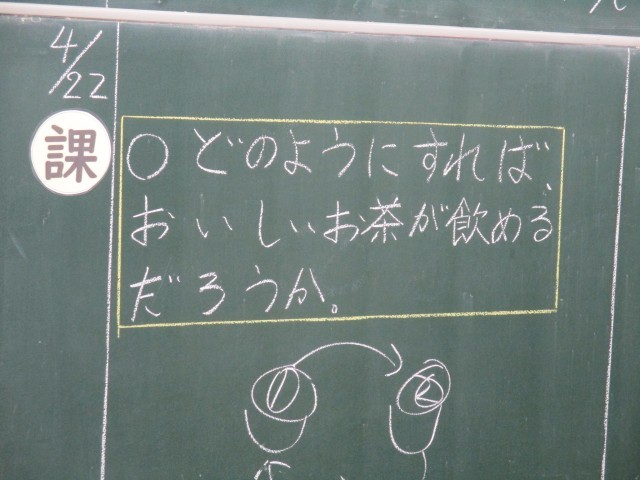 4/22
課
○どのようにすれば、
おいしいお茶が飲める
だろうか。
① ②